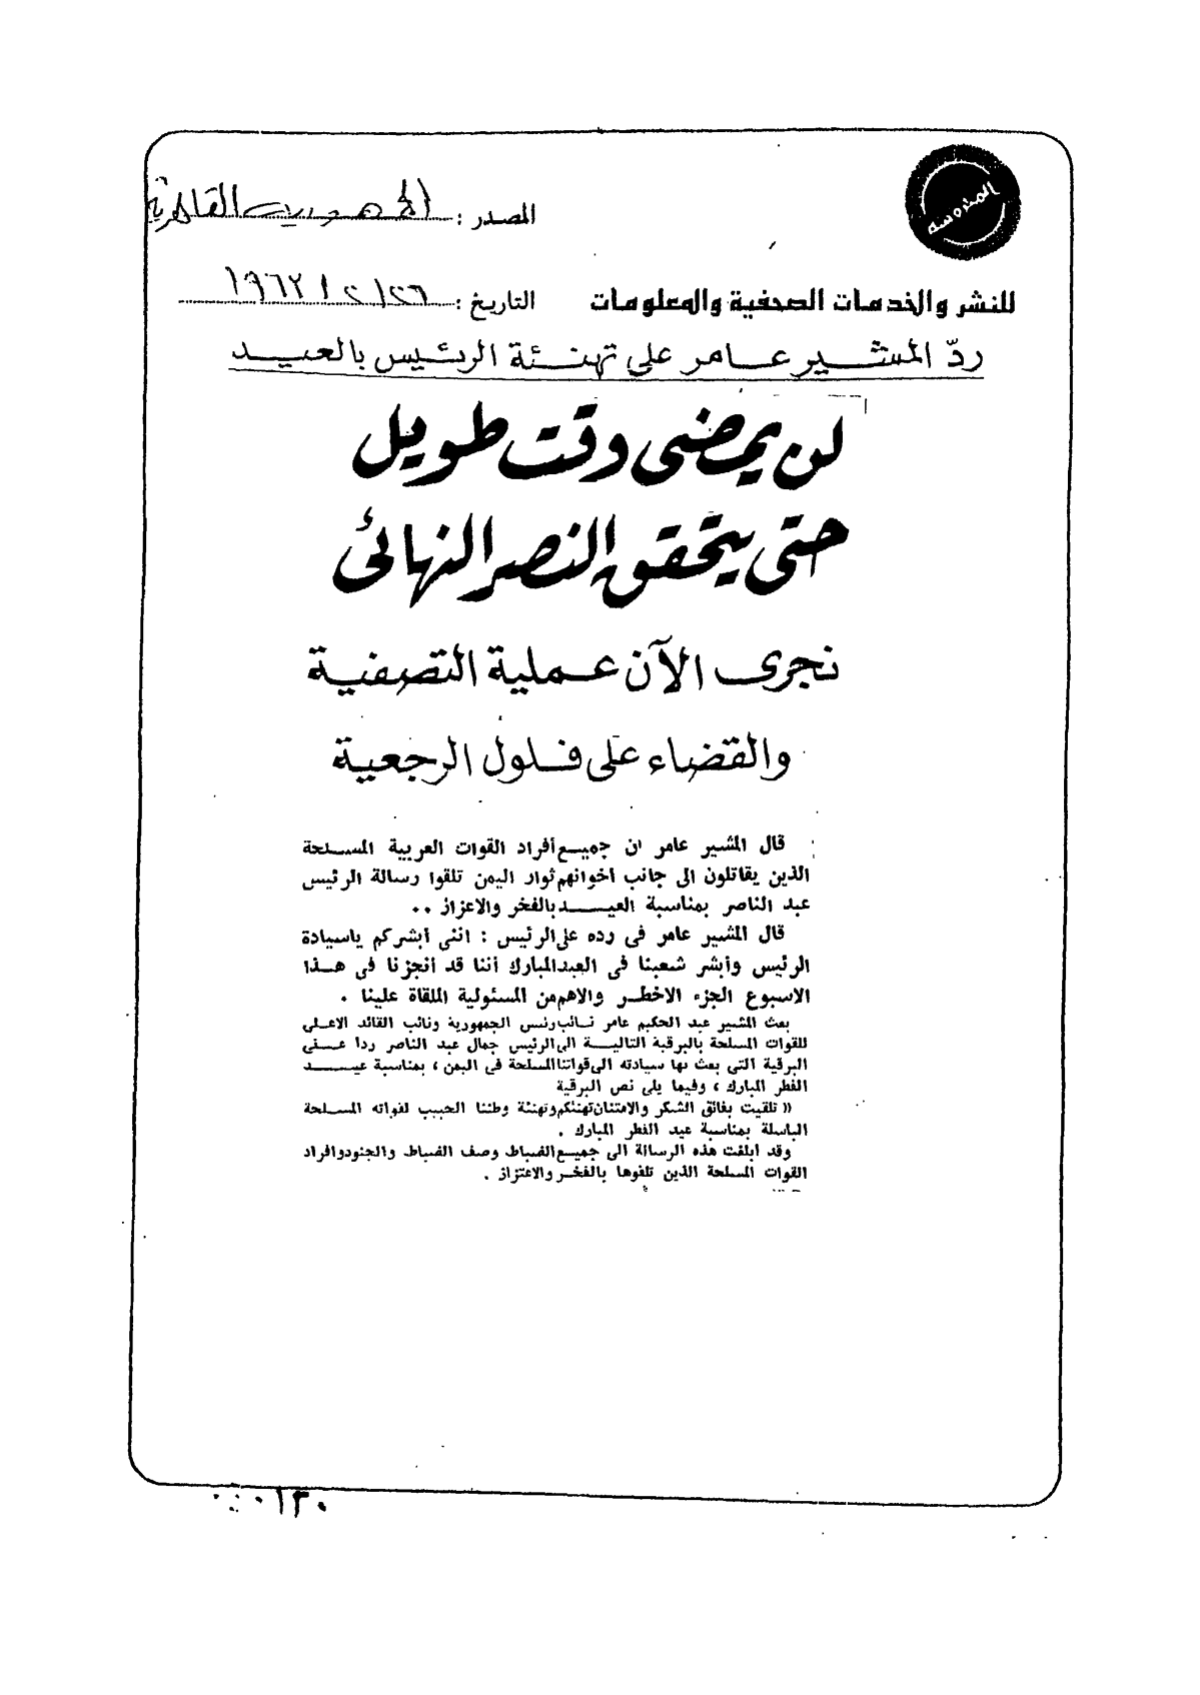 المحروسة
المصدر : الجمهورية القاهرية
للنشر والخدمات الصحفية والمعلومات
التاريخ : ٢٦ / ٢ / ١٩٦٣
ردّ المشير عامر على تهنئة الرئيس بالعيد
لن يمضى وقت طويل
حتى يتحقق النصر النهائى
نجرى الآن عملية التصفية
والقضاء على فلول الرجعية
قال المشير عامر ان جميع أفراد القوات العربية المسلحة
الذين يقاتلون الى جانب اخوانهم ثوار اليمن تلقوا رسالة الرئيس
عبد الناصر بمناسبة العيد بالفخر والاعزاز ..
قال المشير عامر فى رده على الرئيس : اننى أبشركم ياسيادة
الرئيس وأبشر شعبنا فى العيد المبارك أننا قد أنجزنا فى هذا
الاسبوع الجزء الاخطر والاهم من المسئولية الملقاة علينا .
بعث المشير عبد الحكيم عامر نائب رئيس الجمهورية ونائب القائد الاعلى
للقوات المسلحة بالبرقية التالية الى الرئيس جمال عبد الناصر ردا على
البرقية التى بعث بها سيادته الى قواتنا المسلحة فى اليمن ، بمناسبة عيد
الفطر المبارك ، وفيما يلى نص البرقية
« تلقيت بفائق الشكر والامتنان تهنئتكم وتهنئة وطننا الحبيب لقواته المسلحة
الباسلة بمناسبة عيد الفطر المبارك .
وقد ابلغت هذه الرسالة الى جميع الضباط وصف الضباط والجنود وافراد
القوات المسلحة الذين تلقوها بالفخر والاعتزاز .
٠١٣٠